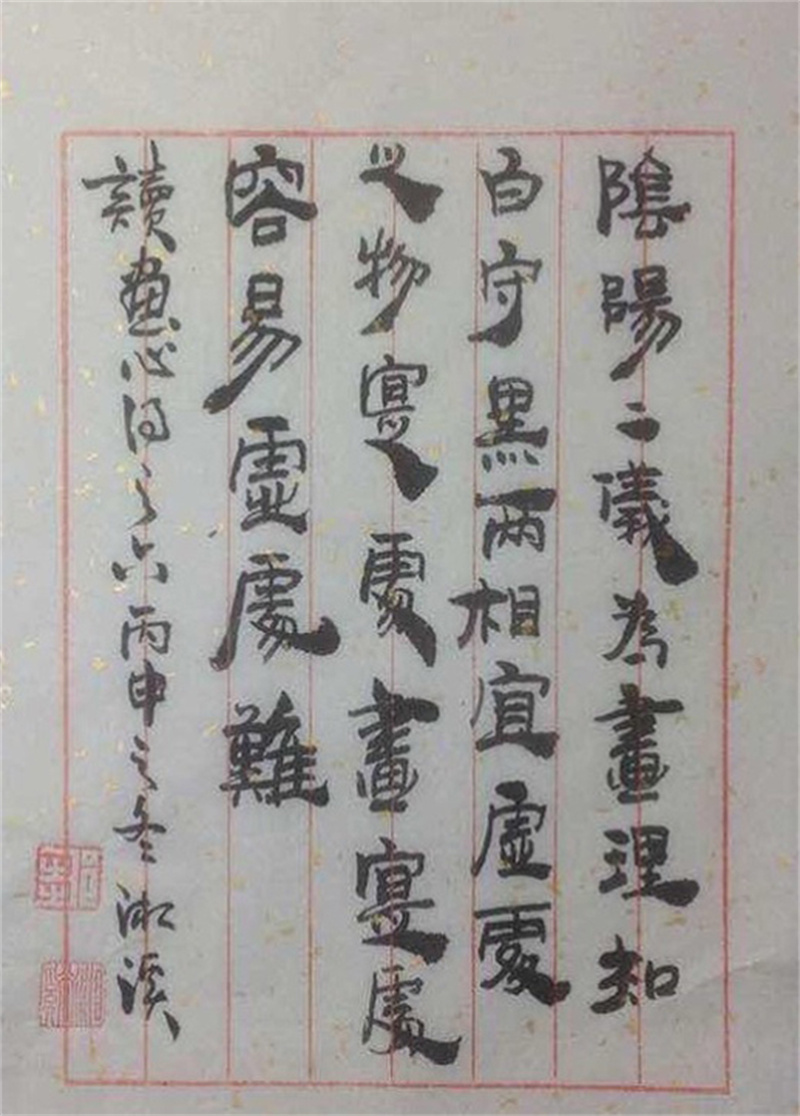 陰陽二儀為畫理知
白守黑兩相宜虛處
之物寔處畫寔處
容易虛處難
讀畫心得之六丙申之冬溪